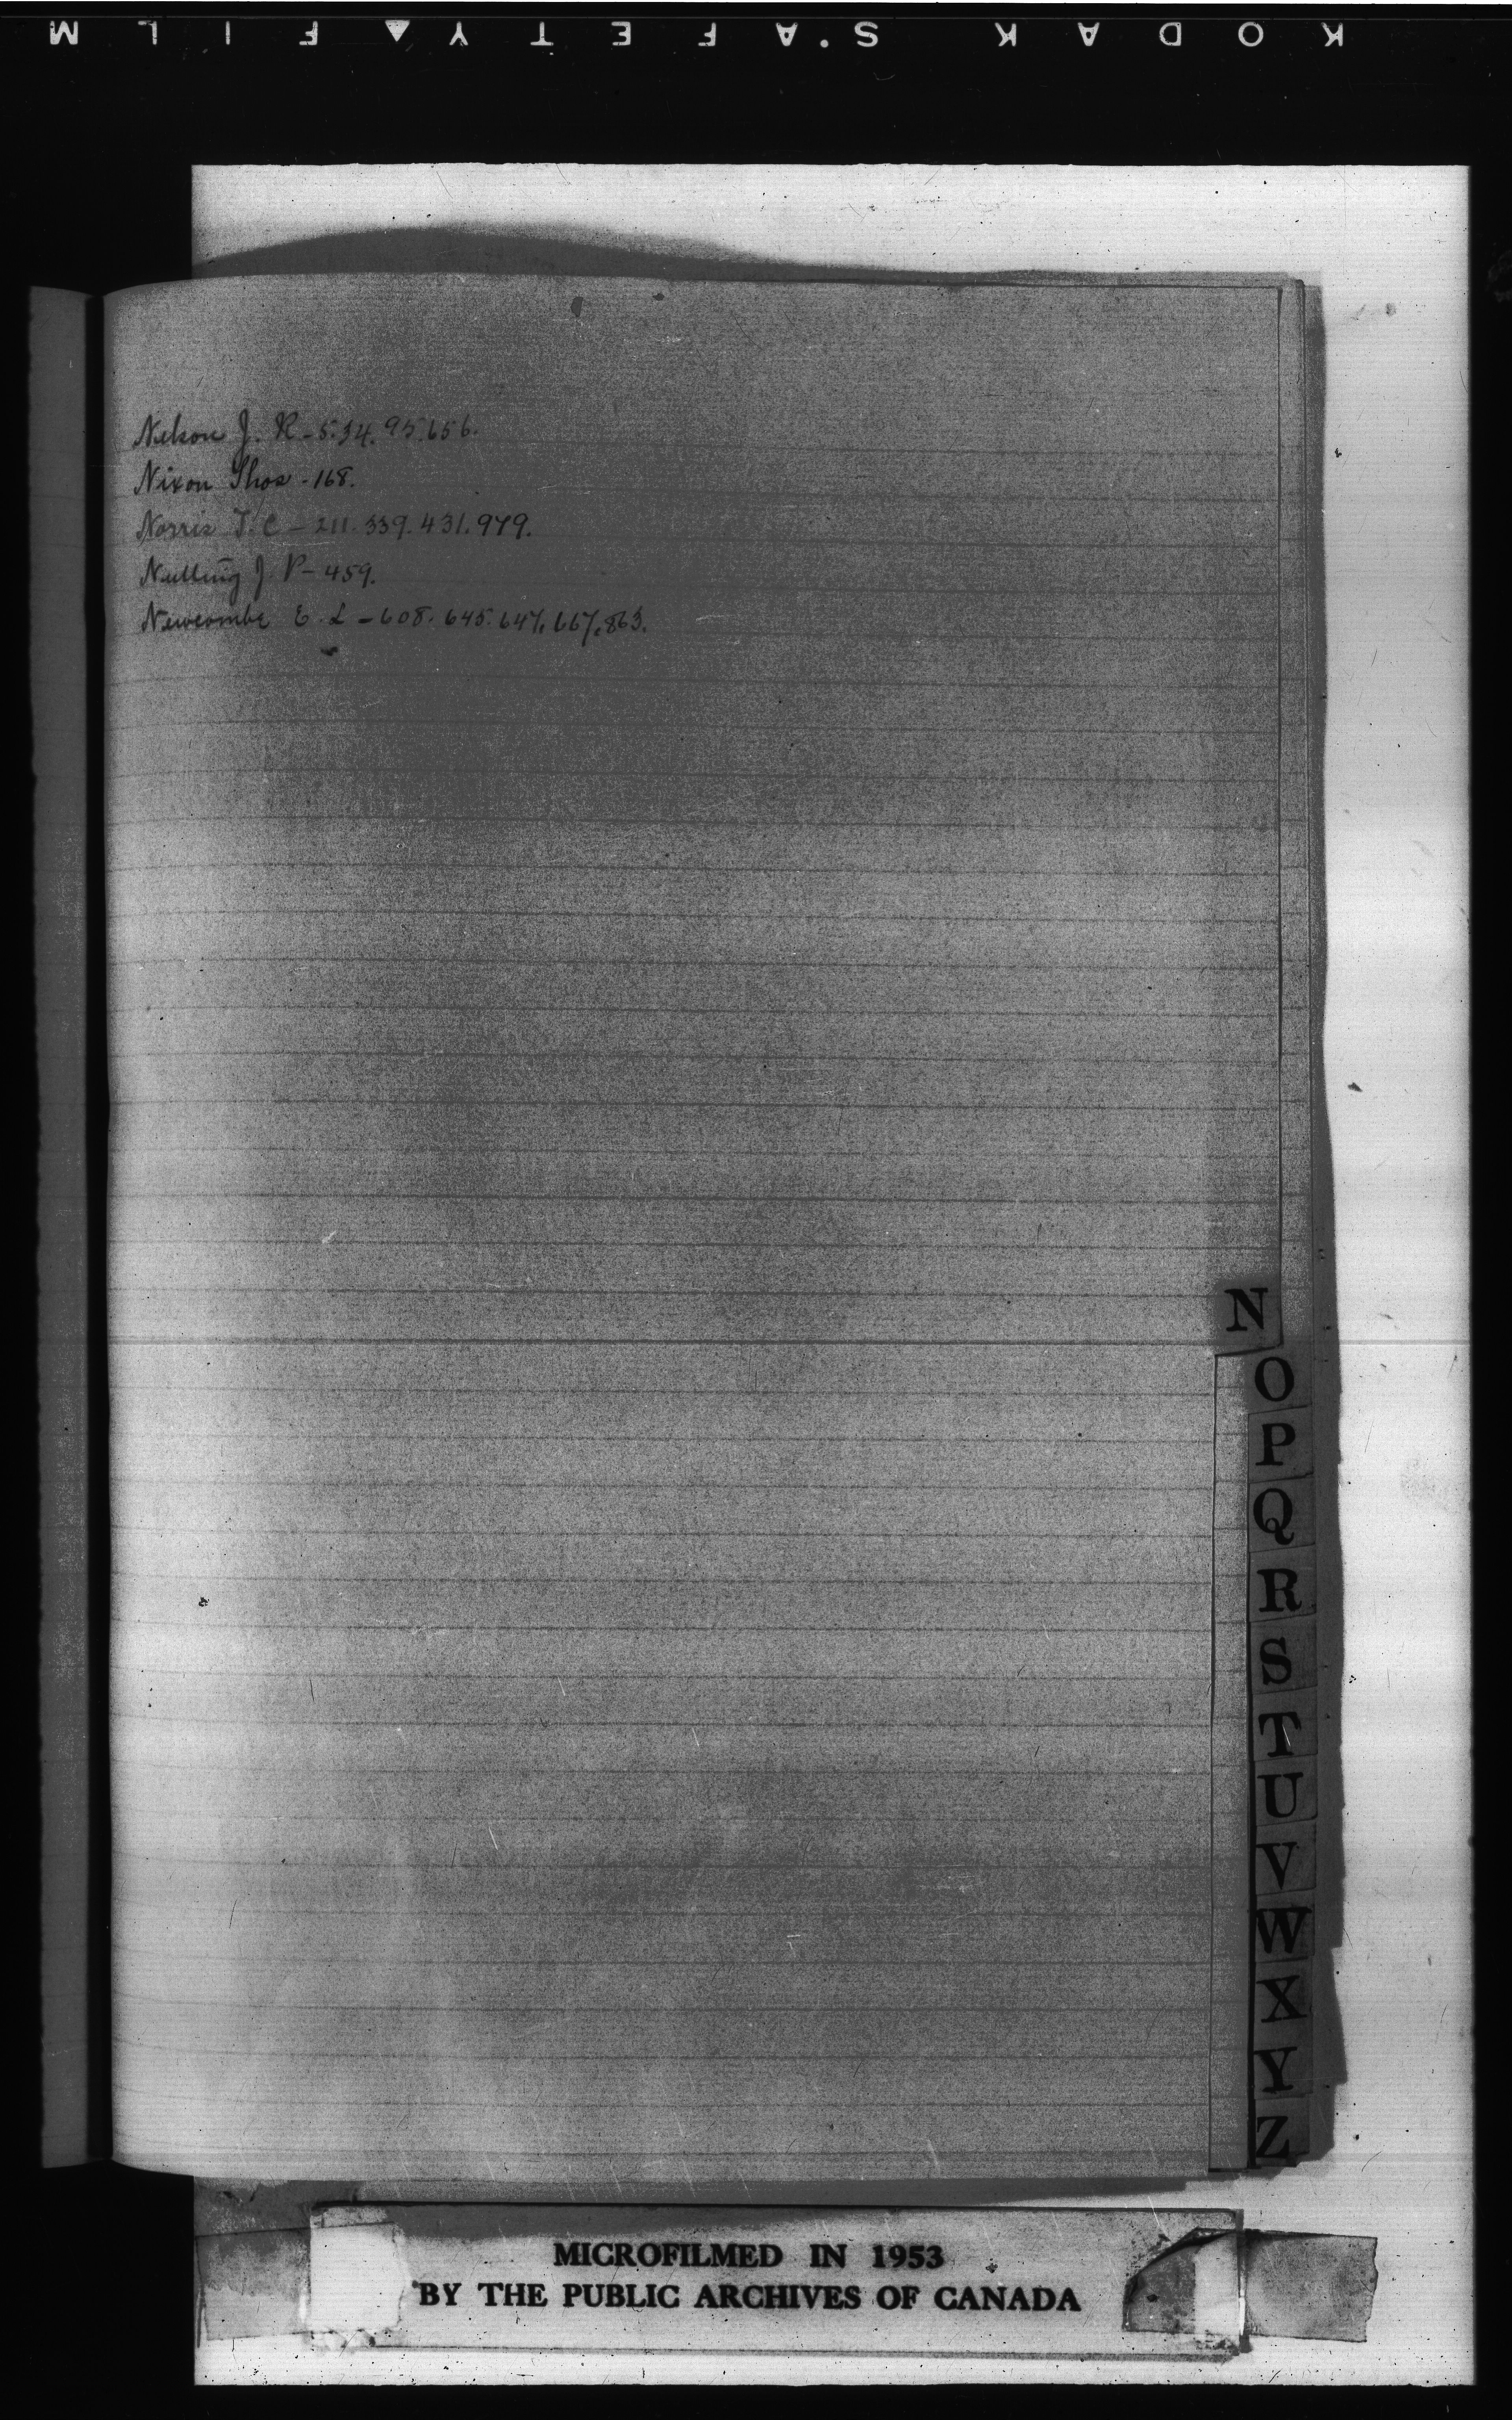 KODAK S.AFETY FILM
Nelson J. R - 5.34.95.656.
Nixon Thos - 168.
Norris T. C - 211.339.431.979.
Nutting J. P - 459.
Newcombe E. L - 608.645.647.667.863.
N
O
P
Q
R
S
T
U
V
W
X
Y
Z
MICROFILMED IN 1953
BY THE PUBLIC ARCHIVES OF CANADA